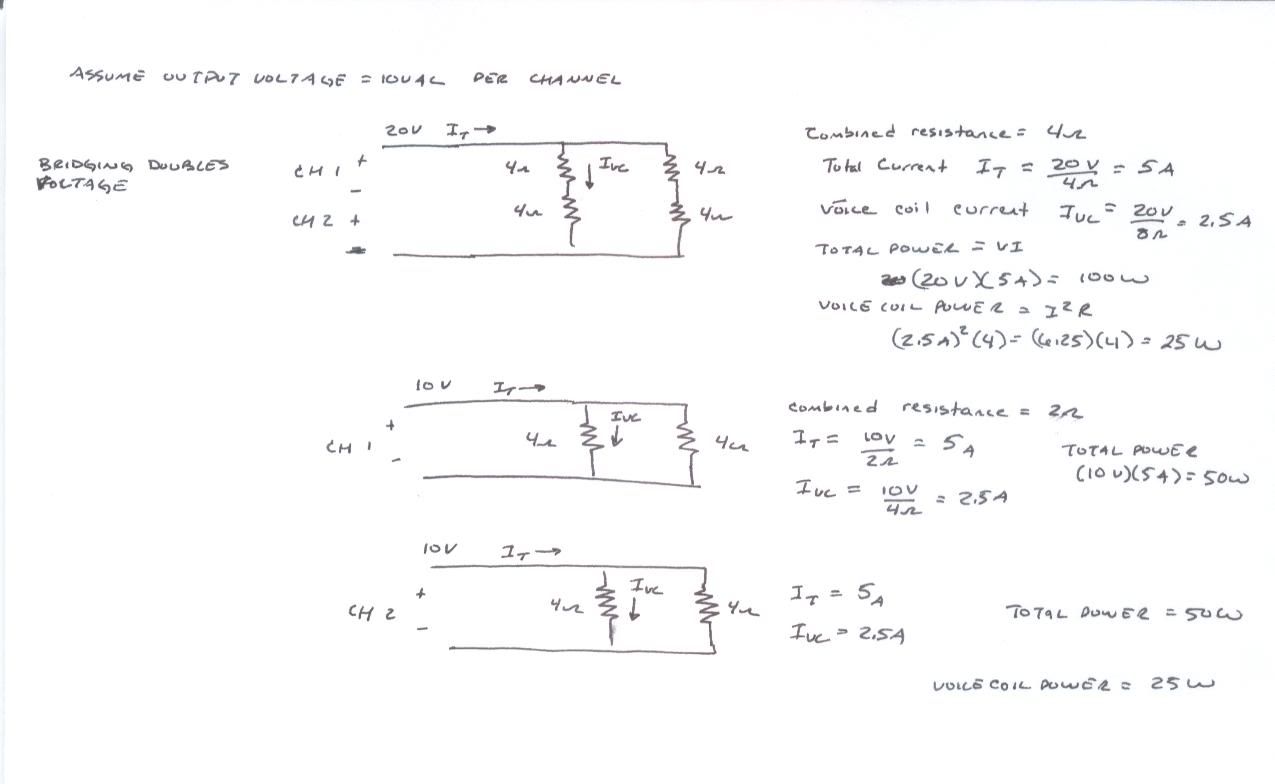 ASSUME OUTPUT VOLTAGE = 10VAC PER CHANNEL
BRIDGING DOUBLES
VOLTAGE
20V IT →
CH 1 +
-
CH 2 +
-
4Ω IVC 4Ω
4Ω 4Ω
Combined resistance = 4Ω
Total Current IT = 20V/4Ω = 5A
Voice coil current IVC = 20V/8Ω = 2.5A
TOTAL POWER = VI
(20V)(5A) = 100W
VOICE COIL POWER = I²R
(2.5A)²(4) = (6.25)(4) = 25W
10V IT →
CH 1 +
-
4Ω IVC 4Ω
Combined resistance = 2Ω
IT = 10V/2Ω = 5A
IVC = 10V/4Ω = 2.5A
TOTAL POWER
(10V)(5A) = 50W
10V IT →
CH 2 +
-
4Ω IVC 4Ω
IT = 5A
IVC = 2.5A
TOTAL POWER = 50W
VOICE COIL POWER = 25W